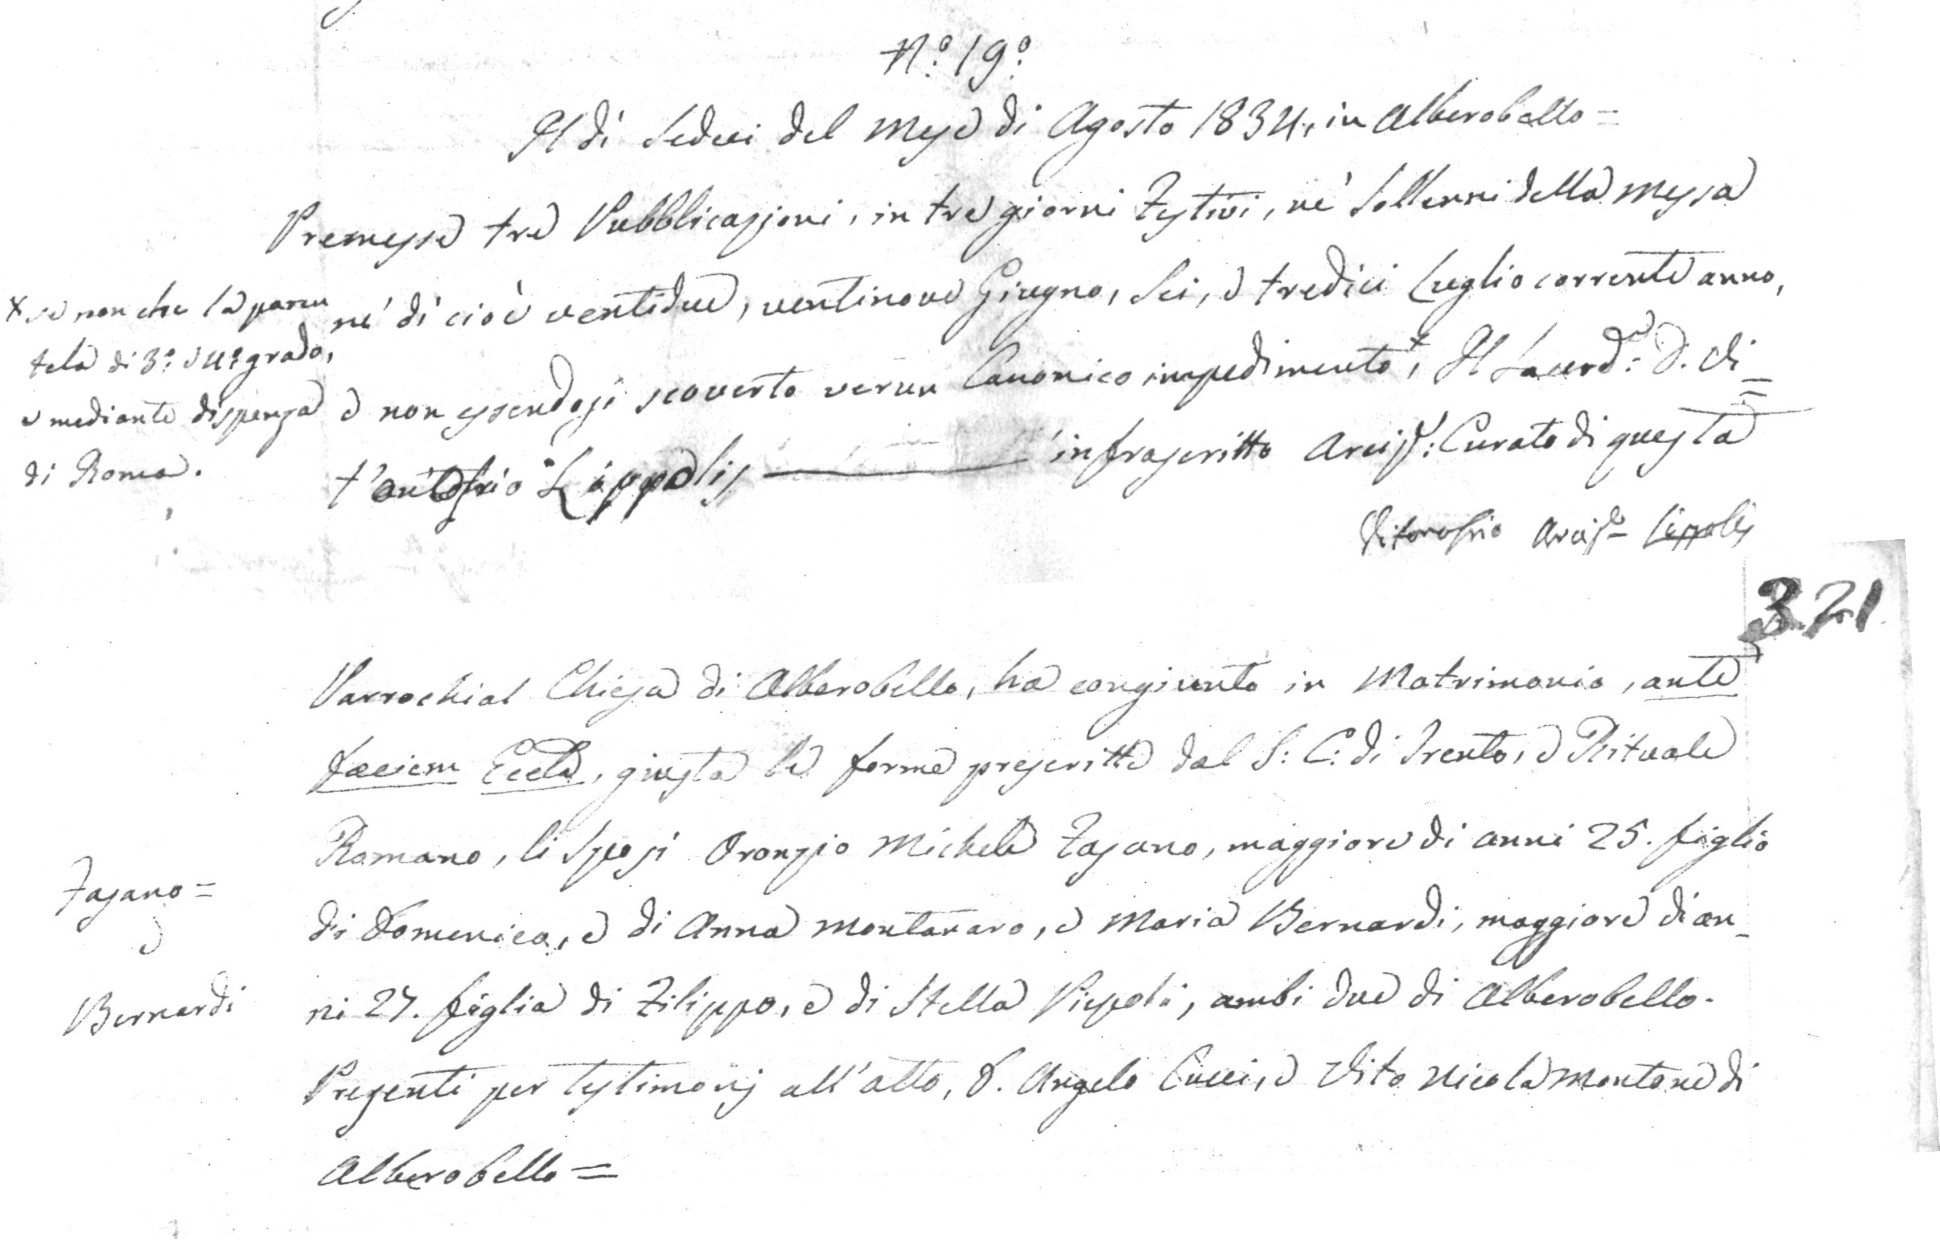 N.º 19º
Il dì Sedici del Mese di Agosto 1834, in Alberobello =
Premesse tre Pubblicazioni, in tre giorni Festivi, nè Sollenni della Messa
nè dì cioè ventidue, ventinove Giugno, Sei, e tredici Luglio corrente anno,
e non essendosi scoverto verun Canonico impedimento x, Il Sacerd.e: D. Vi=
t'Onofrio Lippolis infrascritto Arcip.: Curato di questa
x se non che la paren
tela di 3.º e 4.º grado,
e mediante dispensa
di Roma.
Vitonofrio Arcip.e Lippolis
321
Parrochial Chiesa di Alberobello, ha congiunto in Matrimonio, ante
faciem Eccla, giusta le forme prescritte dal S: C: di Trento, e Rituale
Romano, li Sposi Oronzio Michele Fasano, maggiore di anni 25. figlio
di Domenico, e di Anna Montanaro, e Maria Bernardi, maggiore di an_
ni 27. figlia di Filippo, e di Stella Piepoli, ambi due di Alberobello.
Presenti per testimonj all'atto, D. Angelo Cucci, e Vito Nicola Montone di
Alberobello =
Fasano =
e
Bernardi